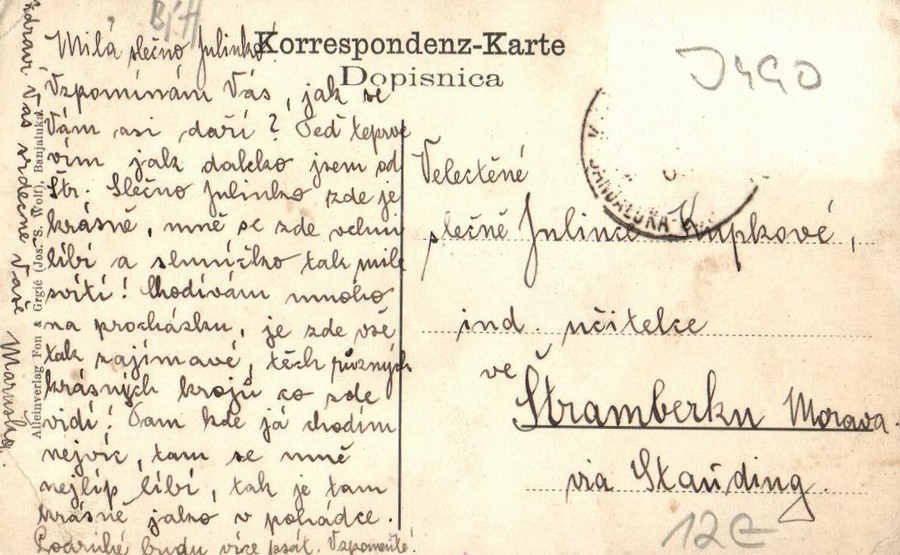 Korrespondenz-Karte
Dopisnica
Milá slečno Julinko!
Vzpomínám Vás, jak se
Vám asi daří? Teď teprve
vím jak daleko jsem od
Štr. Slečno Julinko zde je
krásně, mně se zde velmi
líbí a sluníčko tak mile
svítí! Chodívám mnoho
na procházku, je zde vše
tak zajímavé, těch různých
krásných krojů co zde
vidí! Tam kde já chodím
nejvíc, tam se mně
nejlíp líbí, tak je tam
krásně jako v pohádce.
Podruhé budu více psát. Vzpomeňte!
zdraví Vás srdečně Vaše Maruška.
Alleinverlag Fon & Grgić (Jos. S. Wolf), Banjaluka
Velectěné
slečně Julince Kupkové,
ind. učitelce
ve Štramberku Morava.
via Stauding.
BANJALUKA
BiH
J490
12e